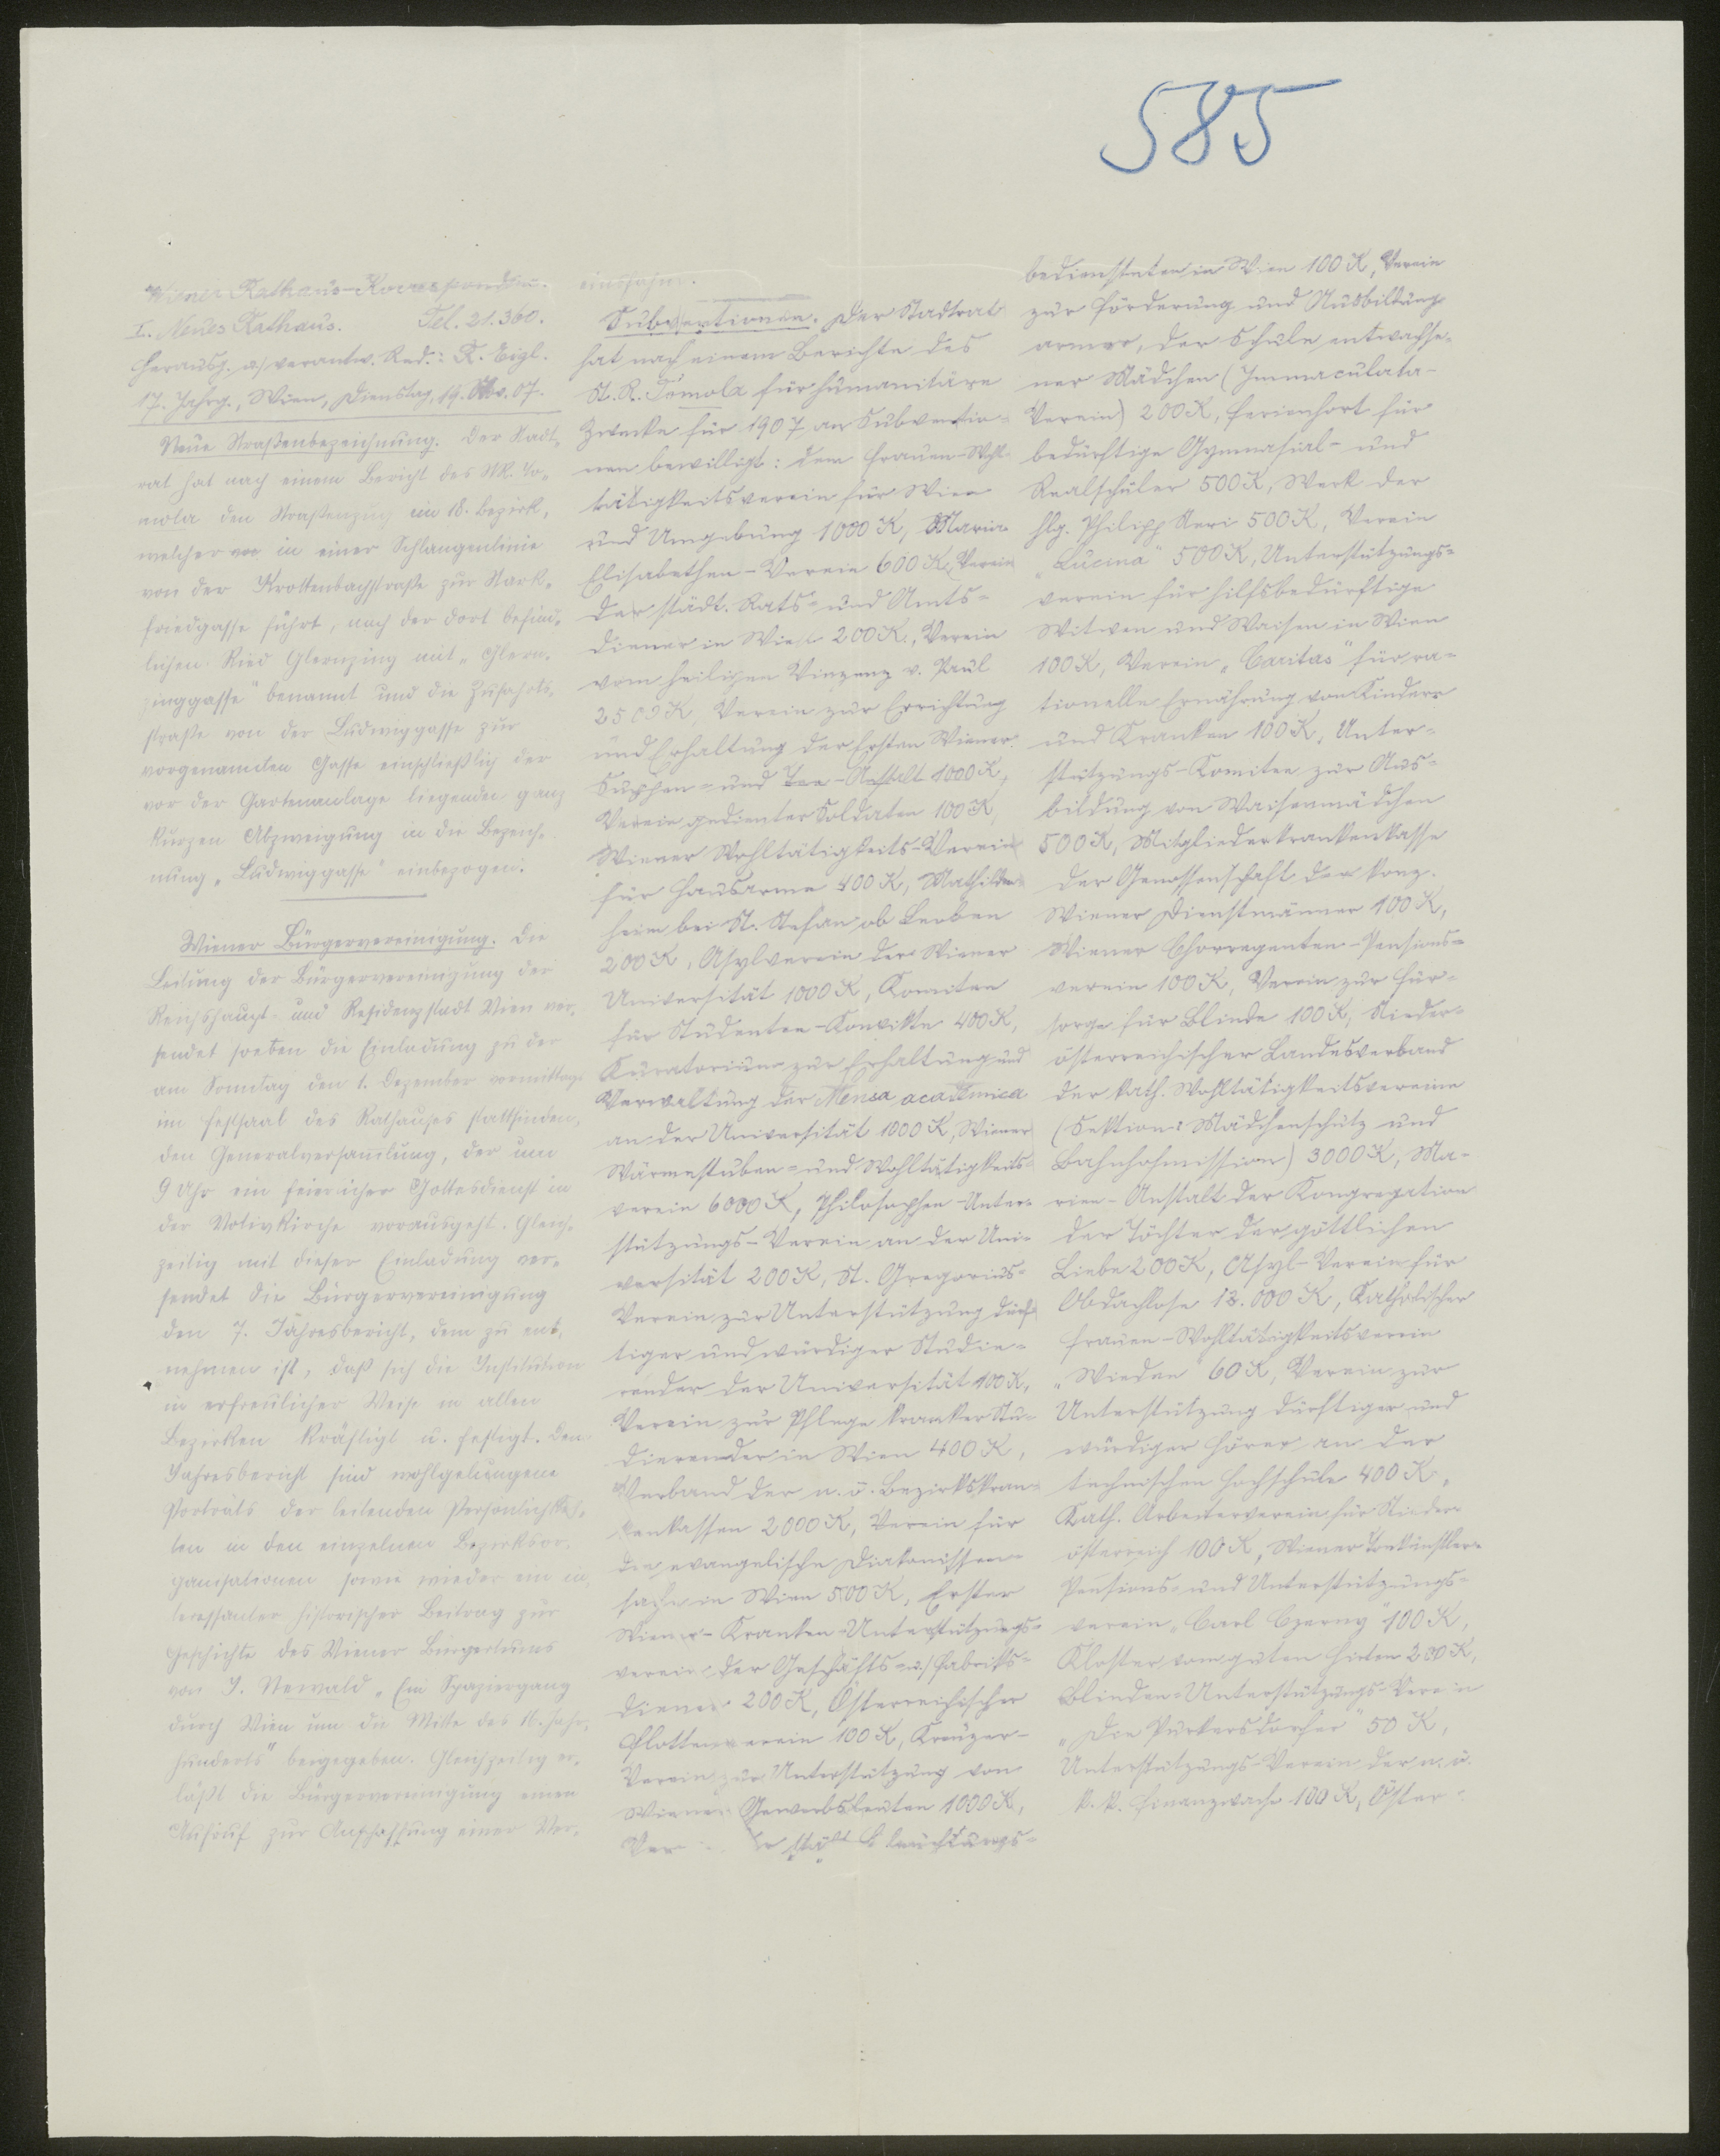 585
Wiener Rathaus-Korrespondenz.
I. Neues Rathaus. Tel. 21.360.
Herausg. u. verantw. Red.: R. Eigl.
17. Jahrg., Wien, Dienstag, 19. Nov. 07.
Neue Straßenbezeichnung. Der Stadt-
rat hat nach einem Bericht des StR. To-
mola den Straßenzug im 18. Bezirk,
welcher in einer Schlangenlinie
von der Krottenbachstraße zur Hark-
friedgasse führt, nach der dort befind-
lichen Ried Glernzing mit "Glern-
zinggasse" benannt und die Zufahrts-
straße von der Ludwiggasse zur
vorgenannten Gasse einschließlich der
vor der Gartenanlage liegenden ganz
kurzen Abzweigung in die Bezeich-
nung "Ludwiggasse" einbezogen.
Wiener Bürgervereinigung. Die
Leitung der Bürgervereinigung der
Reichshaupt- und Residenzstadt Wien ver-
sendet soeben die Einladung zu der
am Sonntag den 1. Dezember vormittags
im Festsaal des Rathauses stattfinden-
den Generalversammlung, der um
9 Uhr ein feierlicher Gottesdienst in
der Votivkirche vorausgeht. Gleich-
zeitig mit dieser Einladung ver-
sendet die Bürgervereinigung
den 7. Jahresbericht, dem zu ent-
nehmen ist, daß sich die Institution
in erfreulicher Weise in allen
Bezirken kräftigt u. festigt. Dem
Jahresbericht sind wohlgelungene
Porträts der leitenden Persönlichkei-
ten in den einzelnen Bezirksor-
ganisationen sowie wieder ein in-
teressanter historischer Beitrag zur
Geschichte des Wiener Bürgertums
von J. Newald "Ein Spaziergang
durch Wien um die Mitte des 16. Jahr-
hunderts" beigegeben. Gleichzeitig er-
läßt die Bürgervereinigung einen
Aufruf zur Anschaffung einer Ver-
einsfahne.
Subventionen. Der Stadtrat
hat nach einem Berichte des
St. R. Tomola für humanitäre
Zwecke für 1907 an Subventio-
nen bewilligt: dem Frauen-Wohl-
tätigkeitsverein für Wien
und Umgebung 1000 K, Maria
Elisabethen-Verein 600 K, Verein
der städt. Rats- und Amts-
diener in Wien 200 K, Verein
vom heiligen Vinzenz v. Paul
2500 K, Verein zur Errichtung
und Erhaltung der Ersten Wiener
Suppen- und Tee-Anstalt 1000 K,
Verein gedienter Soldaten 100 K,
Wiener Wohltätigkeits-Verein
für Hausarme 400 K, Mathilden-
heim bei St. Stefan ob Leoben
200 K, Asylverein der Wiener
Universität 1000 K, Komitee
für Studenten-Konvikte 400 K,
Kuratorium zur Erhaltung und
Verwaltung der Mensa academica
an der Universität 1000 K, Wiener
Wärmestuben- und Wohltätigkeits-
verein 6000 K, Philosophen-Unter-
stützungs-Verein an der Uni-
versität 200 K, St. Gregorius-
Verein zur Unterstützung dürf-
tiger und würdiger Studie-
render der Universität 100 K,
Verein zur Pflege kranker Stu-
dierender in Wien 400 K,
Verband der n. ö. Bezirkskran-
kenkassen 2000 K, Verein für
die evangelische Diakonissen-
sache in Wien 500 K, Erster
Wiener-Kranken-Unterstützungs-
verein der Geschäfts- u. Fabriks-
diener 200 K, Österreichischer
Flottenverein 100 K, Kreuzer-
Verein zur Unterstützung von
Wiener Gewerbsleuten 1000 K,
Verein der städt. Beleuchtungs-
bediensteten in Wien 100 K, Verein
zur Förderung und Ausbildung
armer, der Schule entwachse-
ner Mädchen (Immaculata-
Verein) 200 K, Ferienhort für
bedürftige Gymnasial- und
Realschüler 500 K, Werk der
hlg. Philipp Neri 500 K, Verein
"Lucina" 500 K, Unterstützungs-
verein für hilfsbedürftige
Witwen und Waisen in Wien
100 K, Verein "Caritas" für ra-
tionelle Ernährung von Kindern
und Kranken 100 K, Unter-
stützungs-Komitee zur Aus-
bildung von Waisenmädchen
500 K, Mitgliederkrankenkasse
der Genossenschaft der konz.
Wiener Dienstmänner 100 K,
Wiener Chorregenten-Pensions-
verein 100 K, Verein zur Für-
sorge für Blinde 100 K, Nieder-
österreichischer Landesverband
der kath. Wohltätigkeitsvereine
(Sektion: Mädchenschutz und
Bahnhofmission) 3000 K, Ma-
rien-Anstalt der Kongregation
der Töchter der göttlichen
Liebe 200 K, Asyl-Verein für
Obdachlose 12.000 K, Katholischer
Frauen-Wohltätigkeitsverein
"Wieden" 60 K, Verein zur
Unterstützung dürftiger und
würdiger Hörer an der
technischen Hochschule 400 K,
Kath. Arbeiterverein für Nieder-
österreich 100 K, Wiener Tonkünstler-
Pensions- und Unterstützungs-
verein "Carl Czerny" 100 K,
Kloster vom guten Hirten 200 K,
Blinden-Unterstützungs-Verein
"Die Purkersdorfer" 50 K,
Unterstützungs-Verein der n. ö.
k. k. Finanzwache 100 K, Öster-